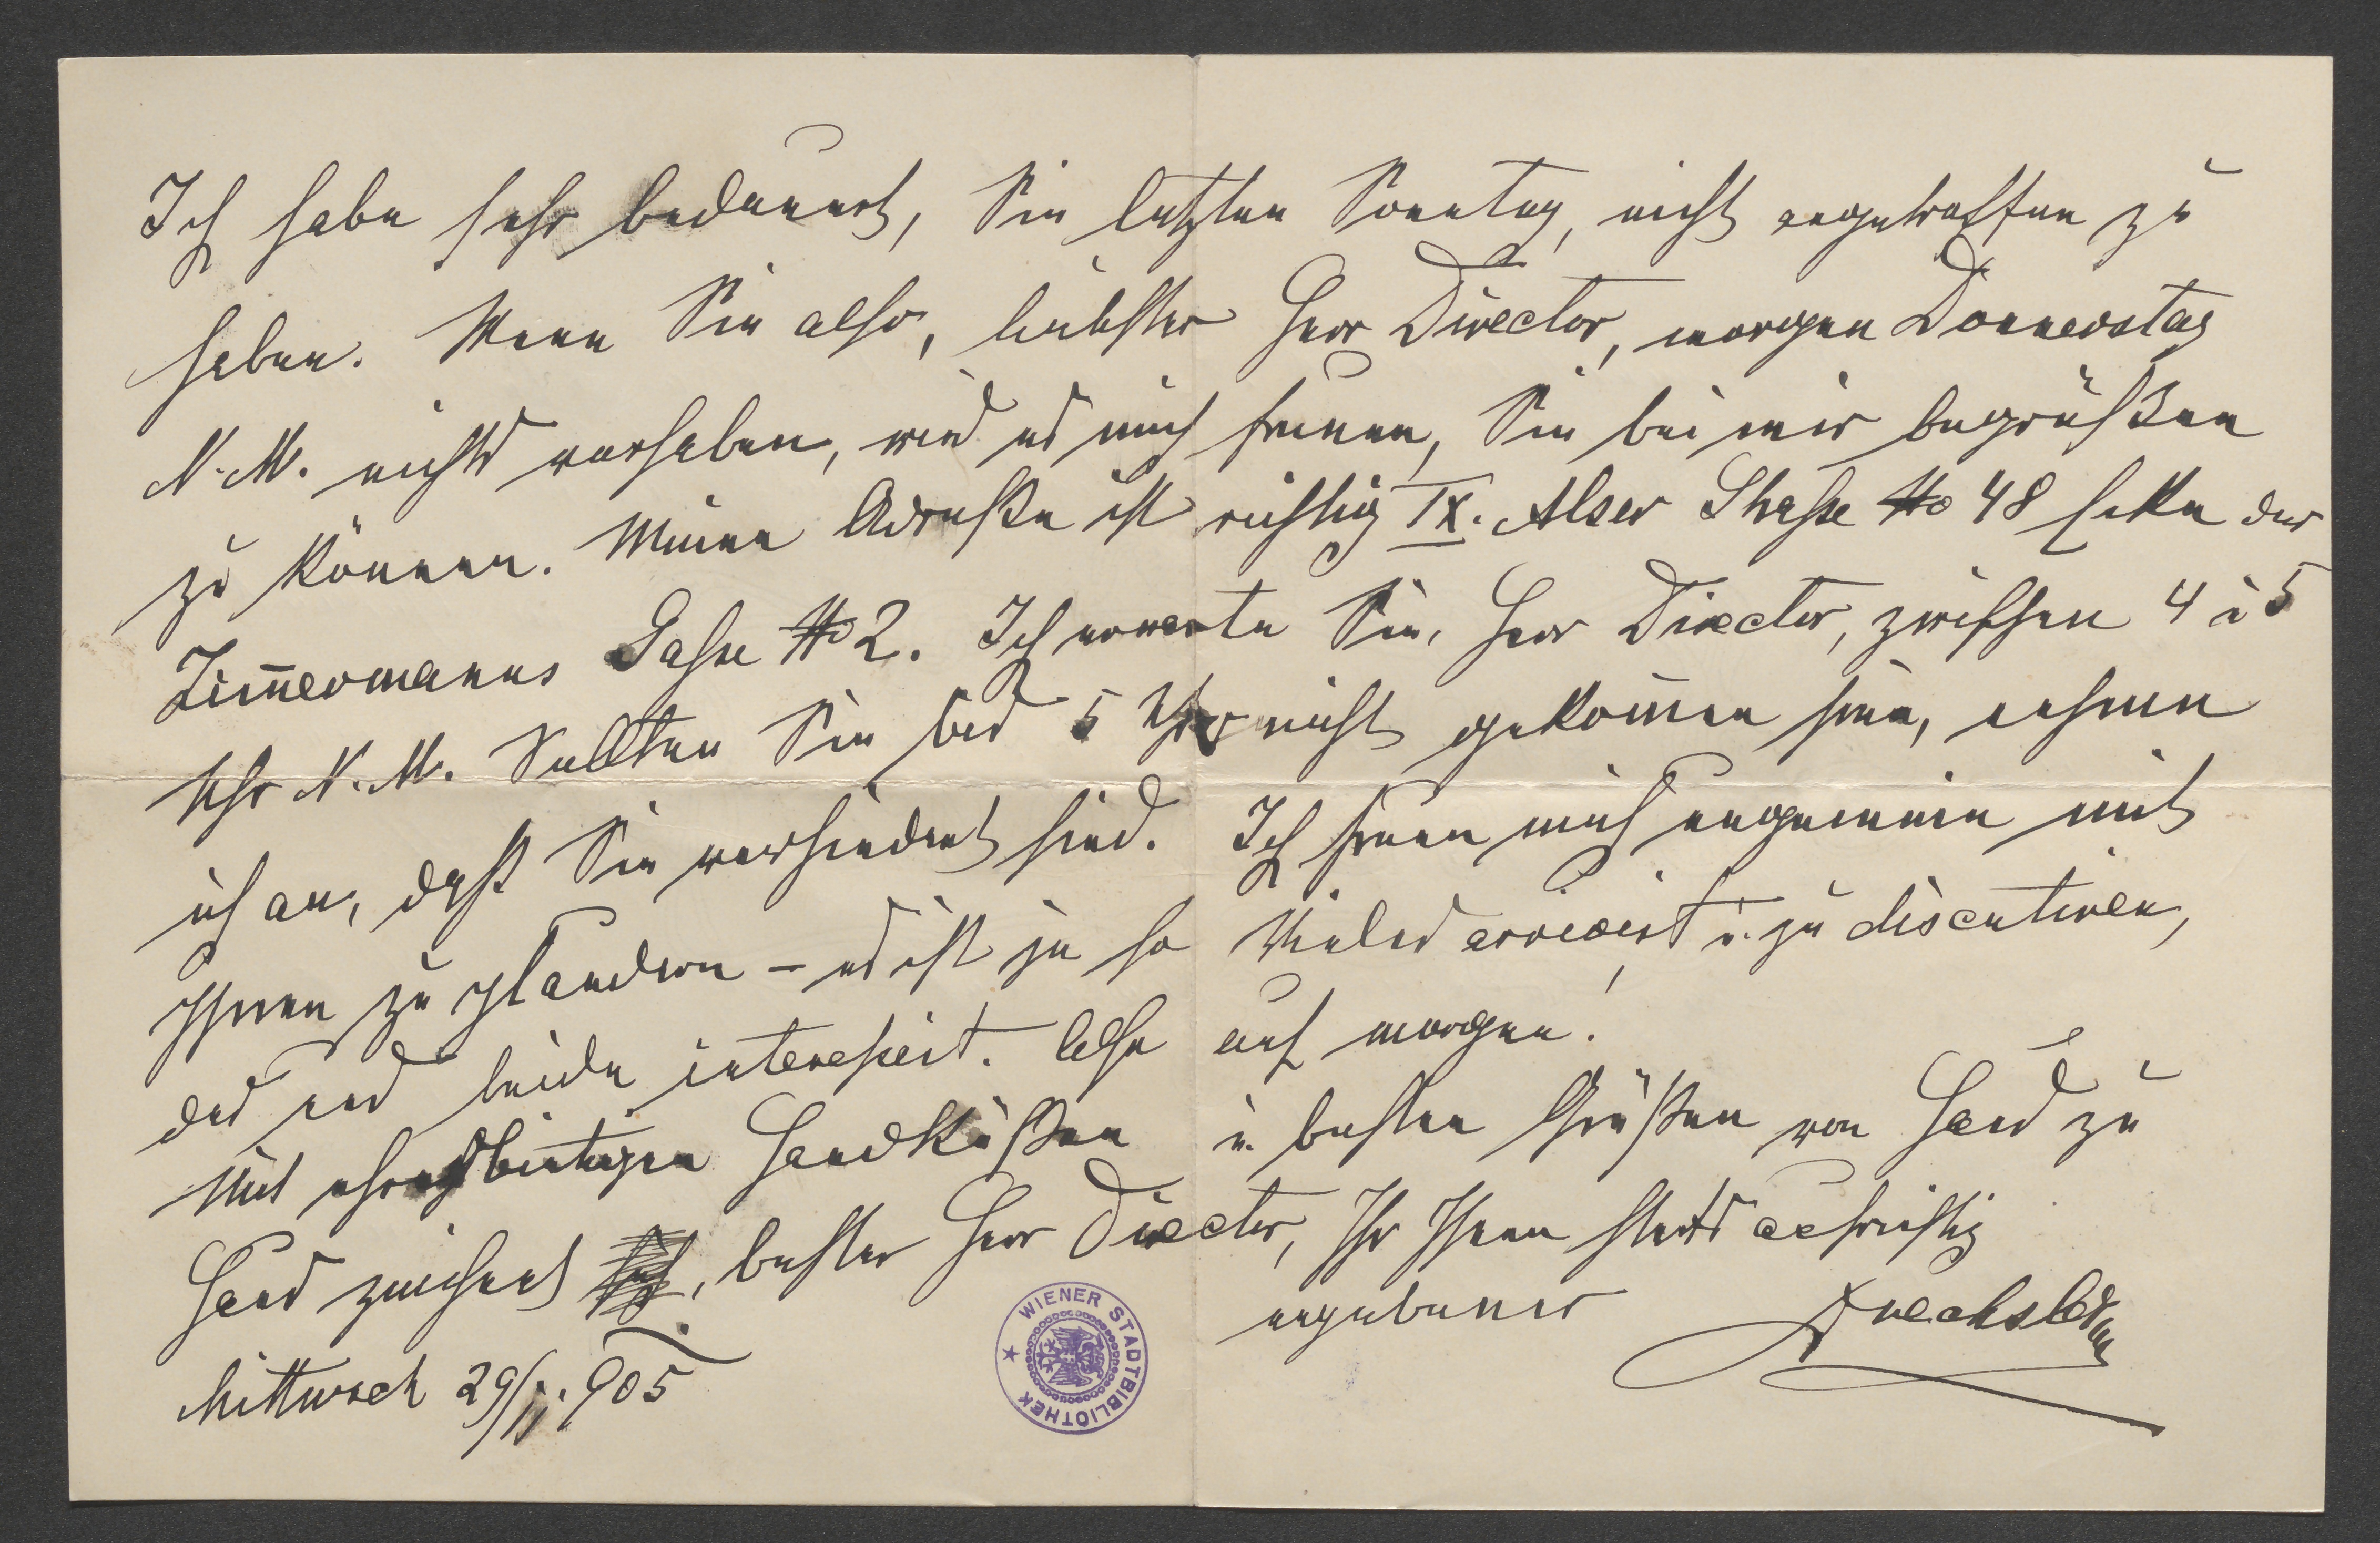 Ich habe sehr bedauert, Sie letzten Sonntag, nicht angetroffen zu
haben. Wenn Sie also, liebster Herr Director, morgen Donnerstag
N. M. nichts vorhaben, wird es mich freuen, Sie bei mir begrüßen
zu können. Meine Adreße ist richtig IX. Alser Straße No 48 Ecke der
Zim̅ermanns Gasse No 2. Ich erwarte Sie, Herr Director, zwischen 4 u 5
Uhr N. M. Sollten Sie bis 5 Uhr nicht gekom̅en sein, nehme
ich an, daß Sie verhindert sind. Ich freue mich ungemein mit
Ihnen zu plaudern – es ist ja so Vieles arrivirt u. zu discutiren,
das uns beide interessirt. Also auf morgen.
Mit ehrerbietigen Handküßen u. besten Grüßen von Haus zu
Haus zeichnet, bester Herr Director, Ihr Ihnen stets aufrichtig
ergebener
Mittwoch 29/11. 905
WIENER STADTBIBLIOTHEK